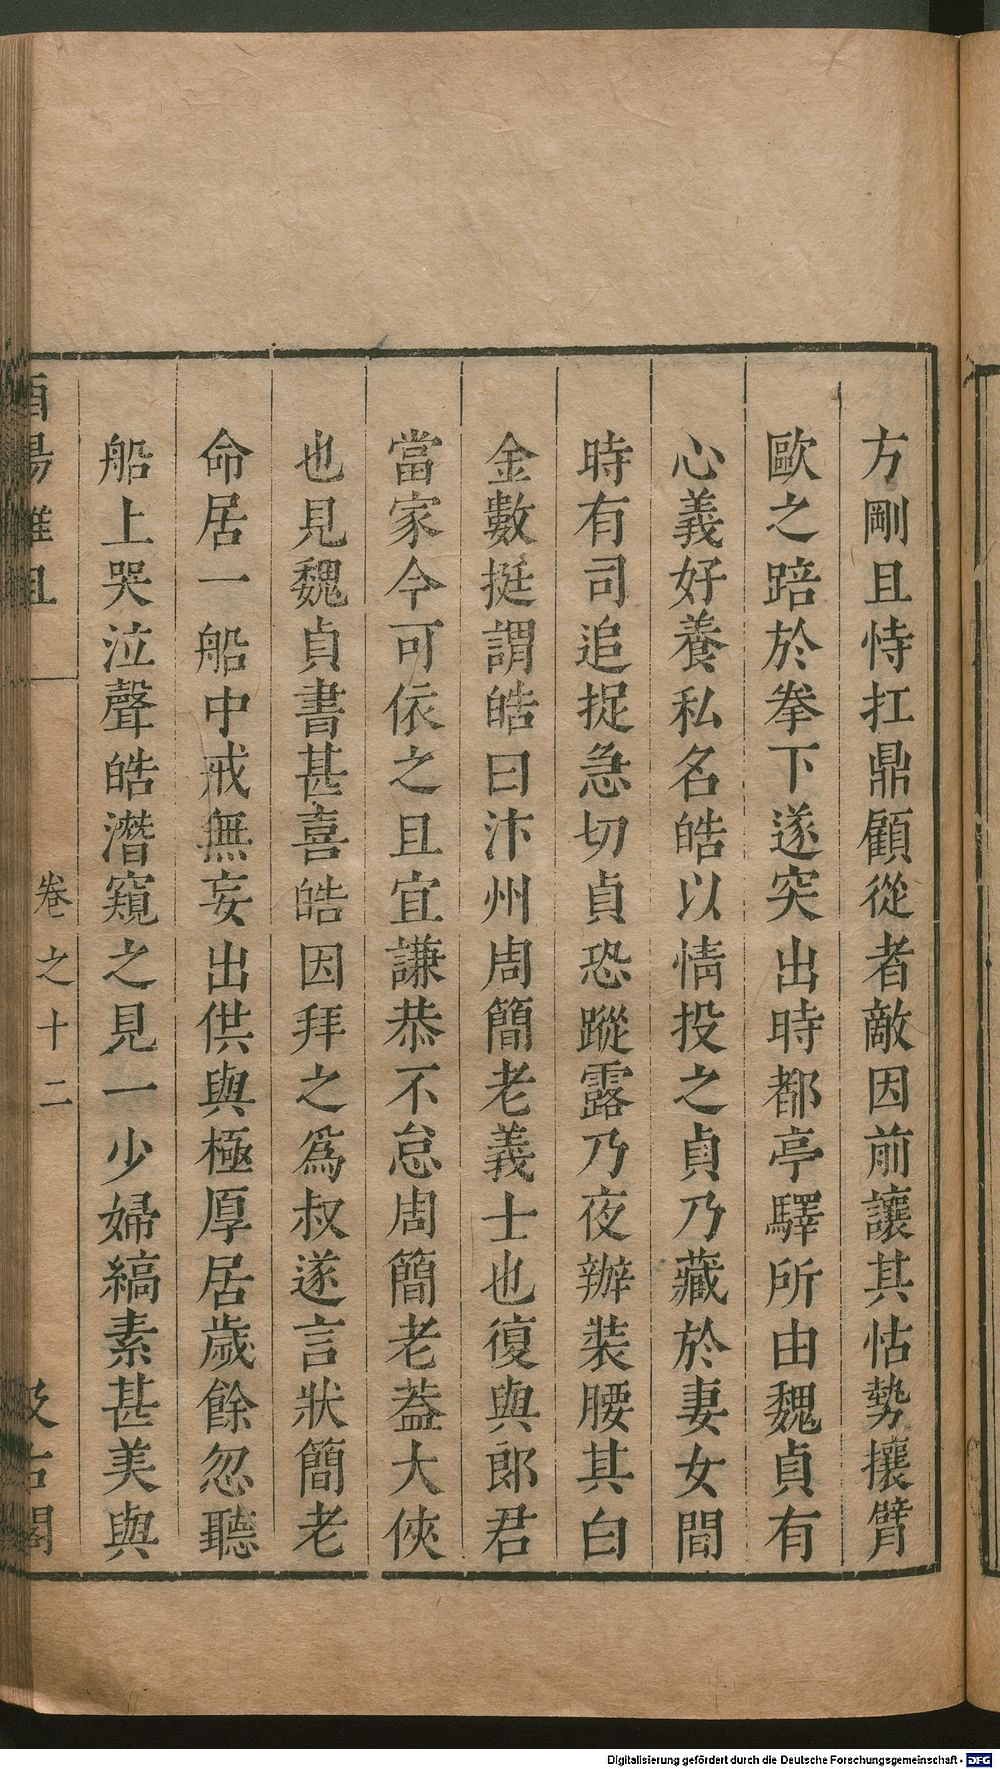 方剛且恃扛鼎顧從者敵因前讓其怙勢攘臂
歐之踣於拳下遂突出時都亭驛所由魏貞有
心義好養私名皓以情投之貞乃藏於妻女間
時有司追捉急切貞恐蹤露乃夜辦裝腰其白
金數挺謂皓曰汴州周簡老義士也復與郎君
當家今可依之且宜謙恭不怠周簡老葢大俠
也見魏貞書甚喜皓因拜之爲叔遂言狀簡老
命居一船中戒無妄出供與極厚居歲餘忽聽
船上哭泣聲皓潛窺之見一少婦縞素甚美與
酉陽雜俎
卷之十二
汲古閣
Digitalisierung gefördert durch die Deutsche Forschungsgemeinschaft - DFG